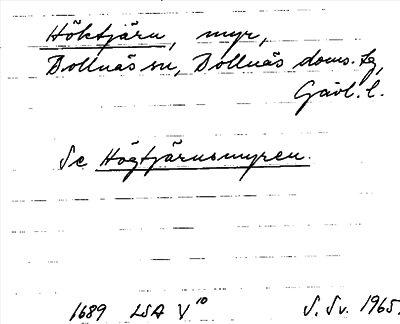 Höktjärn, myr,
Bollnäs sn, Bollnäs doms. tg,
Gävl. l.
Se Högtjärnsmyren.
1689 LSA V 10
S. Sv. 1965.